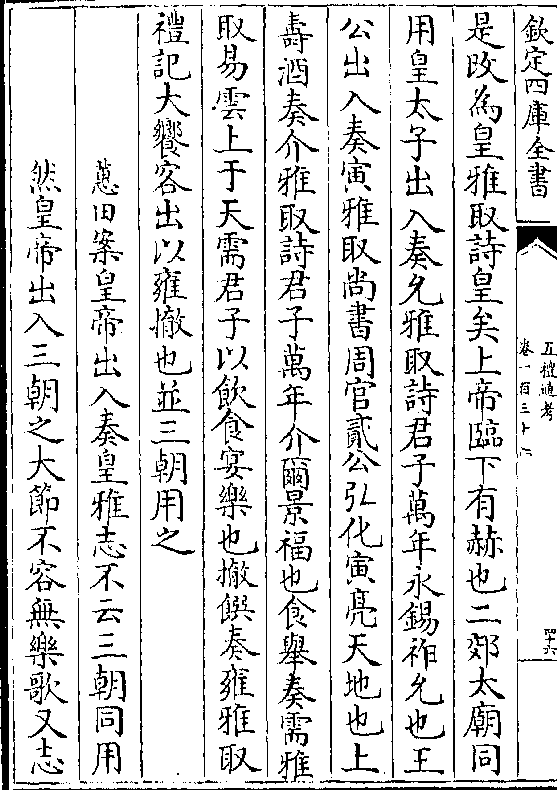 欽定四庫全書
五禮通考
卷一百三十六
四十六
是改為皇雅取詩皇矣上帝臨下有赫也二郊太廟同
用皇太子出入奏允雅取詩君子萬年永錫祚允也王
公出入奏寅雅取尚書周官貳公弘化寅亮天地也上
壽酒奏介雅取詩君子萬年介爾景福也食舉奏需雅
取易雲上于天需君子以飲食宴樂也撤饌奏雍雅取
禮記大饗客出以雍撤也並三朝用之
蕙田案皇帝出入奏皇雅志不云三朝同用
然皇帝出入三朝之大節不容無樂歌又志